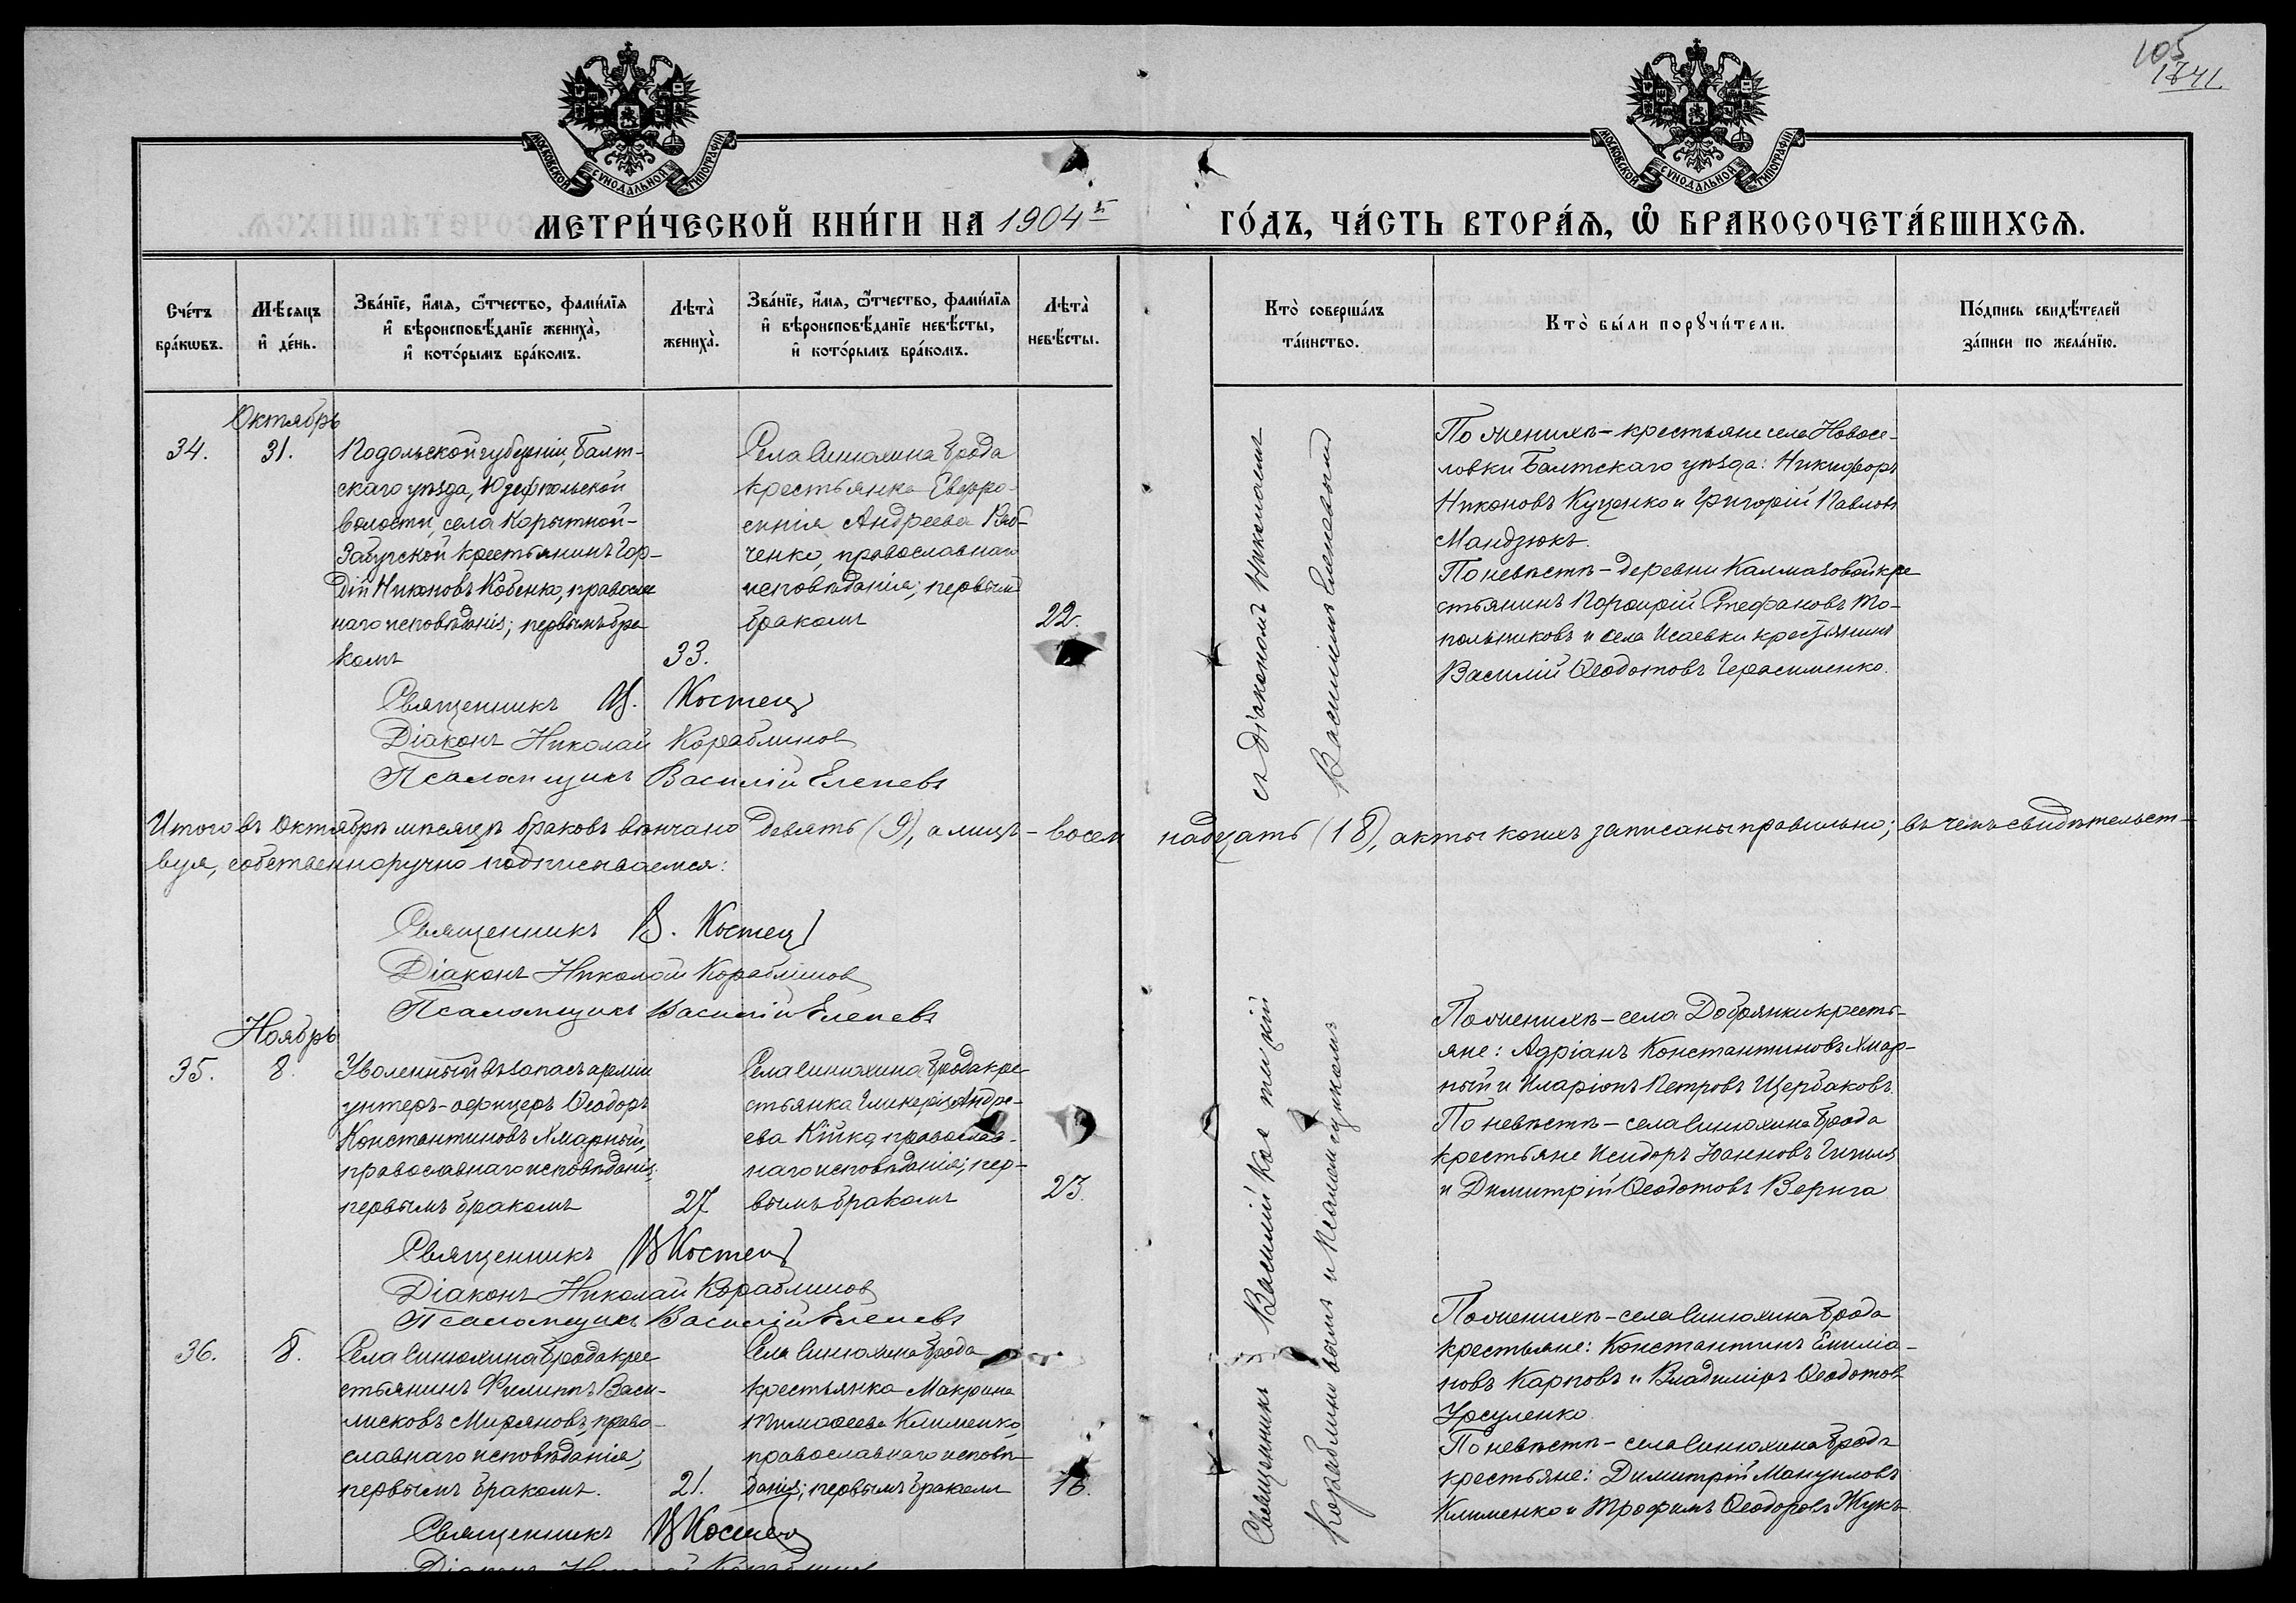 105
1841.
МОСКОВСКОЙ СѴНОДАЛЬНОЙ ТИПОГРАФІИ
МОСКОВСКОЙ СѴНОДАЛЬНОЙ ТИПОГРАФІИ
МЕТРИ́ЧЕСКОЙ КНИ́ГИ НА 1904 й
ГО́ДЪ, ЧА́СТЬ ВТОРА́Я, Ѽ БРАКОСОЧЕТА́ВШИХСЯ.
Сче́тъ
бра́кѡвъ.
Мѣ́сяцъ
и҆ де́нь.
Зва́нїе, и҆́мя, ѻ҆́тчество, фами́лїя
и҆ вѣроисповѣ́данїе жениха̀,
и҆ кото́рымъ бра́комъ.
Лѣта̀
жениха̀.
Зва́нїе, и҆́мя, ѻ҆́тчество, фами́лїя
и҆ вѣроисповѣ́данїе невѣ́сты,
и҆ кото́рымъ бра́комъ.
Лѣта̀
невѣ́сты.
Кто̀ соверша́лъ
та́инство.
Кто̀ бы́ли порꙋчи́тели.
По́дпись свидѣ́телей
за́писи по жела́нїю.
Октябрь
34.
31.
Подольской губерніи, Балт-
скаго уѣзда, Юзефпольской
волости, села Корытной-
Забугской крестьянинъ Гор-
дій Никоновъ Кобенко, правосла
наго исповѣданія; первымъ бра
комъ
33.
Села Синюхина брода
крестьянка Евфро-
синія Андреева Ряб-
ченко, православнаго
исповѣданія; первым
бракомъ
22.
съ Діакономъ Николаемъ
Василіемъ Елепевымъ
По женихѣ - крестьяне села Новосе-
ловки Балтскаго уѣзда: Никифоръ
Никоновъ Куценко и Григорій Павловъ
Мандзюкъ.
По невѣстѣ - деревни Калмазовой кре
стьянинъ Порфирій Стефановъ То-
польниковъ и села Исаевки крестьянинъ
Василій Ѳеодотовъ Герасименко.
Священникъ В. Костец
Діаконъ Николай Кораблинов
Псаломщикъ Василій Елепевъ
Итого въ Октябрѣ мѣсяцѣ браковъ вѣнчано девять (9), а лицъ - восем надцать (18), акты коихъ записаны правильно; въ чемъ свидѣтельст-
вуя, собственноручно подписываемся:
Священникъ В. Костец
Діаконъ Николай Кораблинов
Псаломщикъ Василій Елепевъ
Ноябрь
35.
8.
Уволенный въ запасъ арміи
унтеръ-офицеръ Ѳеодоръ
Константиновъ Хмарный,
православнаго исповѣданія;
первымъ бракомъ
27
Села Синюхина брода кре
стьянка Гликерія Андре-
ева Кійко, православ-
наго исповѣданія; пер-
вымъ бракомъ
23.
Священникъ Василій Кос
Кораблиновымъ и Псаломщикомъ
По женихѣ - села Добрянки кресть-
яне: Адріанъ Константиновъ Хмар-
ный и Иларіонъ Петровъ Щербаковъ.
По невѣстѣ - села Синюхина брода
крестьяне Исидоръ Іоанновъ
и Димитрій Ѳеодотовъ Верига
Священникъ В Костец
Діаконъ Николай Кораблинов
Псаломщикъ Василій Елепевъ
36.
8.
Села Синюхина брода кре
стьянинъ Филиппъ Васи-
лисковъ Мирановъ, право-
славнаго исповѣданія;
первымъ бракомъ.
21.
Села Синюхина брода
крестьянка Макрина
Тимоѳеева Клименко,
православнаго исповѣ-
данія; первымъ бракомъ
18.
По женихѣ - села Синюхина брода
крестьяне: Константинъ Емиліа-
новъ Карповъ и Владиміръ Ѳеодотов
Урсуленко
По невѣстѣ - села Синюхина брода
крестьяне: Димитрій Мануиловъ
Клименко и Трофимъ Ѳеодоровъ Жукъ
Священникъ В Костец
Діаконъ Николай Кораблинов